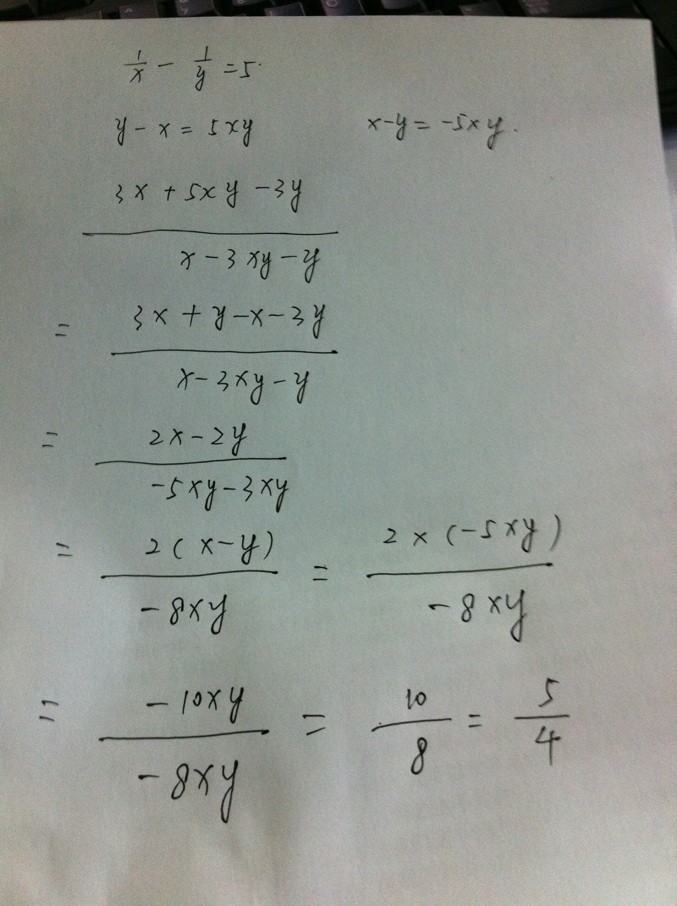 1/x - 1/y = 5.
y - x = 5xy    x-y = -5xy.
3x + 5xy - 3y
x - 3xy - y
= 3x + y - x - 3y
x - 3xy - y
= 2x - 2y
-5xy - 3xy
= 2(x-y) = 2×(-5xy)
-8xy    -8xy
= -10xy = 10/8 = 5/4
-8xy